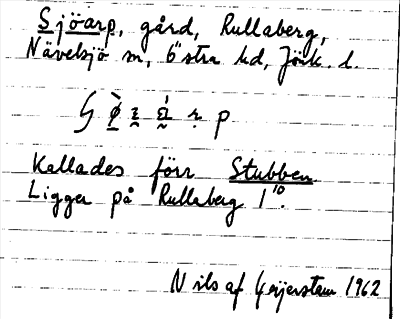 Sjöarp, gård, Rullaberg,
Nävelsjö sn, Östra hd, Jönk. l.
Kallades förr Stubben
Ligger på Rullaberg 1¹⁰.
Nils af Geijerstam 1962